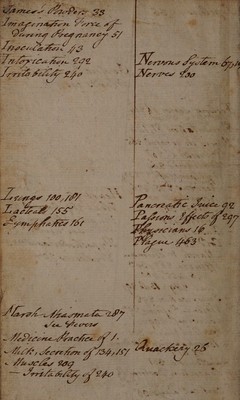 James's Powders 33
Imagination Force of
During Pregnancy 51
Inoculation 43
Intoxication 292
Irritability 240
Lungs 100, 181
Lacteals 155
Lymphatics 161
Marsh Miasmata 287
See Fevers
Medicine Practice of 1.
Milk, Secretion of 134, 151
Muscles 209
— Irritability of 240
Nervous System
Nerves 230
Pancreatic Juice 92
Passions Effects of 297
Physicians 16
Plague 463
Quackery 25